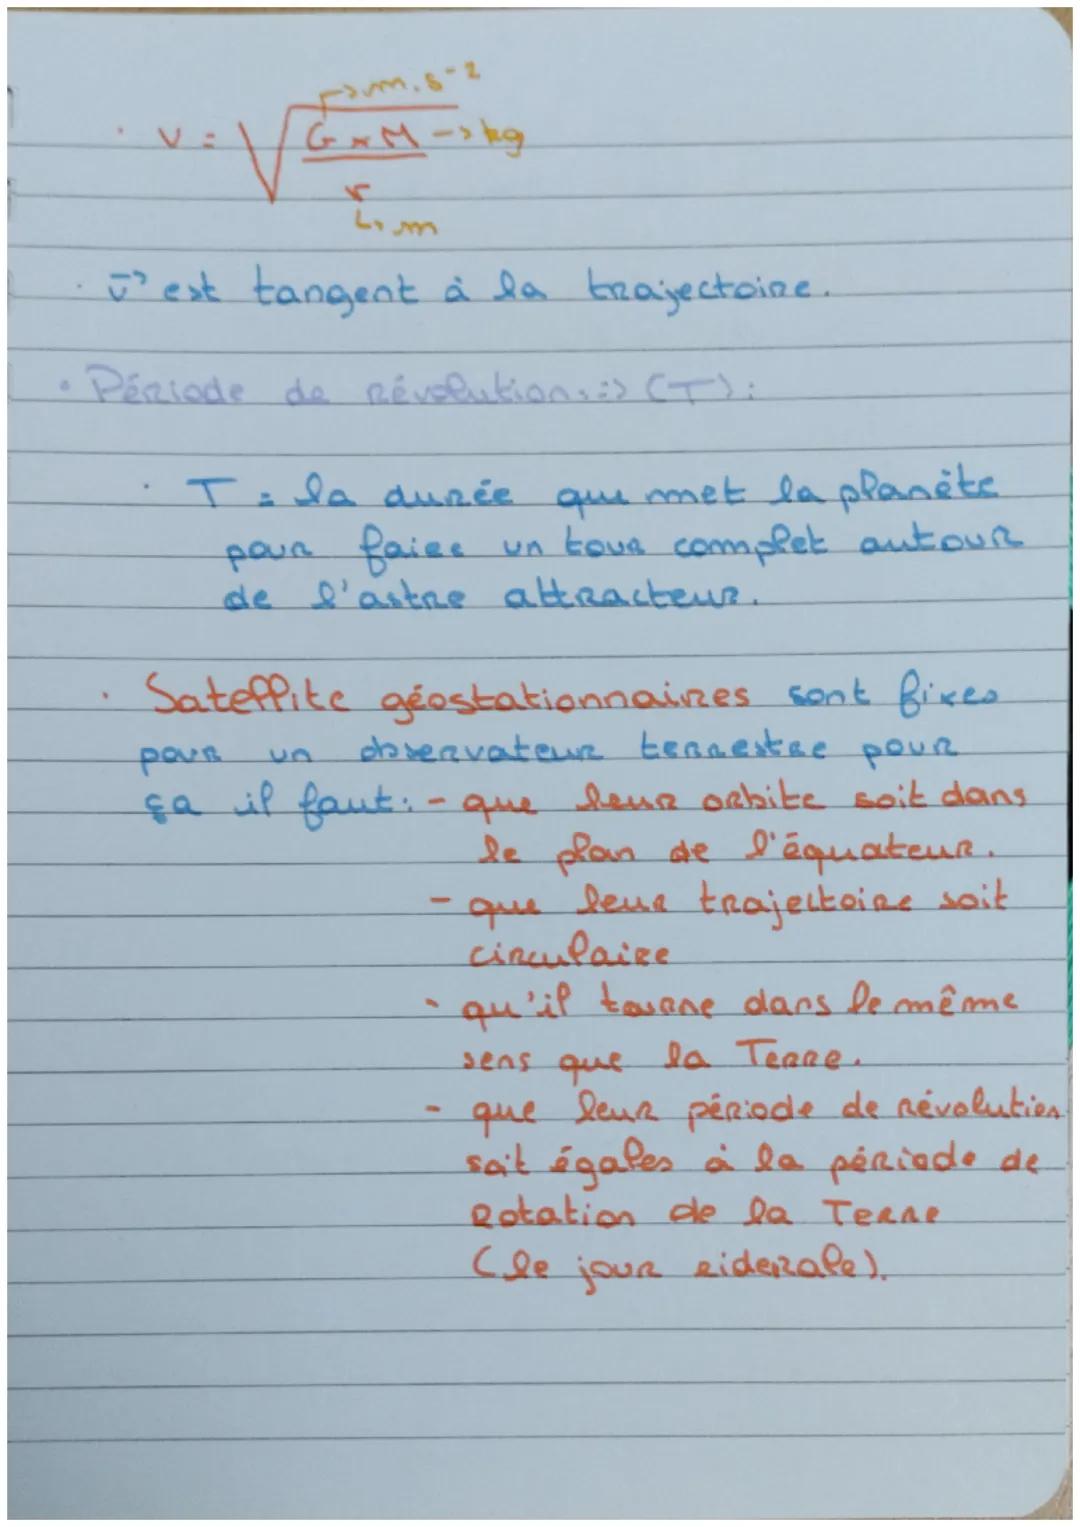 → m.s⁻²
· v = √(G × M / r) → kg
↳ m
· v⃗ est tangent à la trajectoire.
• Période de révolution :=> (T) :
· T = la durée que met la planète
pour faire un tour complet autour
de l'astre attracteur.
· Satellite géostationnaires sont fixes
pour un observateur terrestre pour
ça il faut : - que leur orbite soit dans
le plan de l'équateur.
- que leur trajectoire soit
circulaire
- qu'il tourne dans le même
sens que la Terre.
- que leur période de révolution
soit égales à la période de
rotation de la Terre
(le jour siderale).